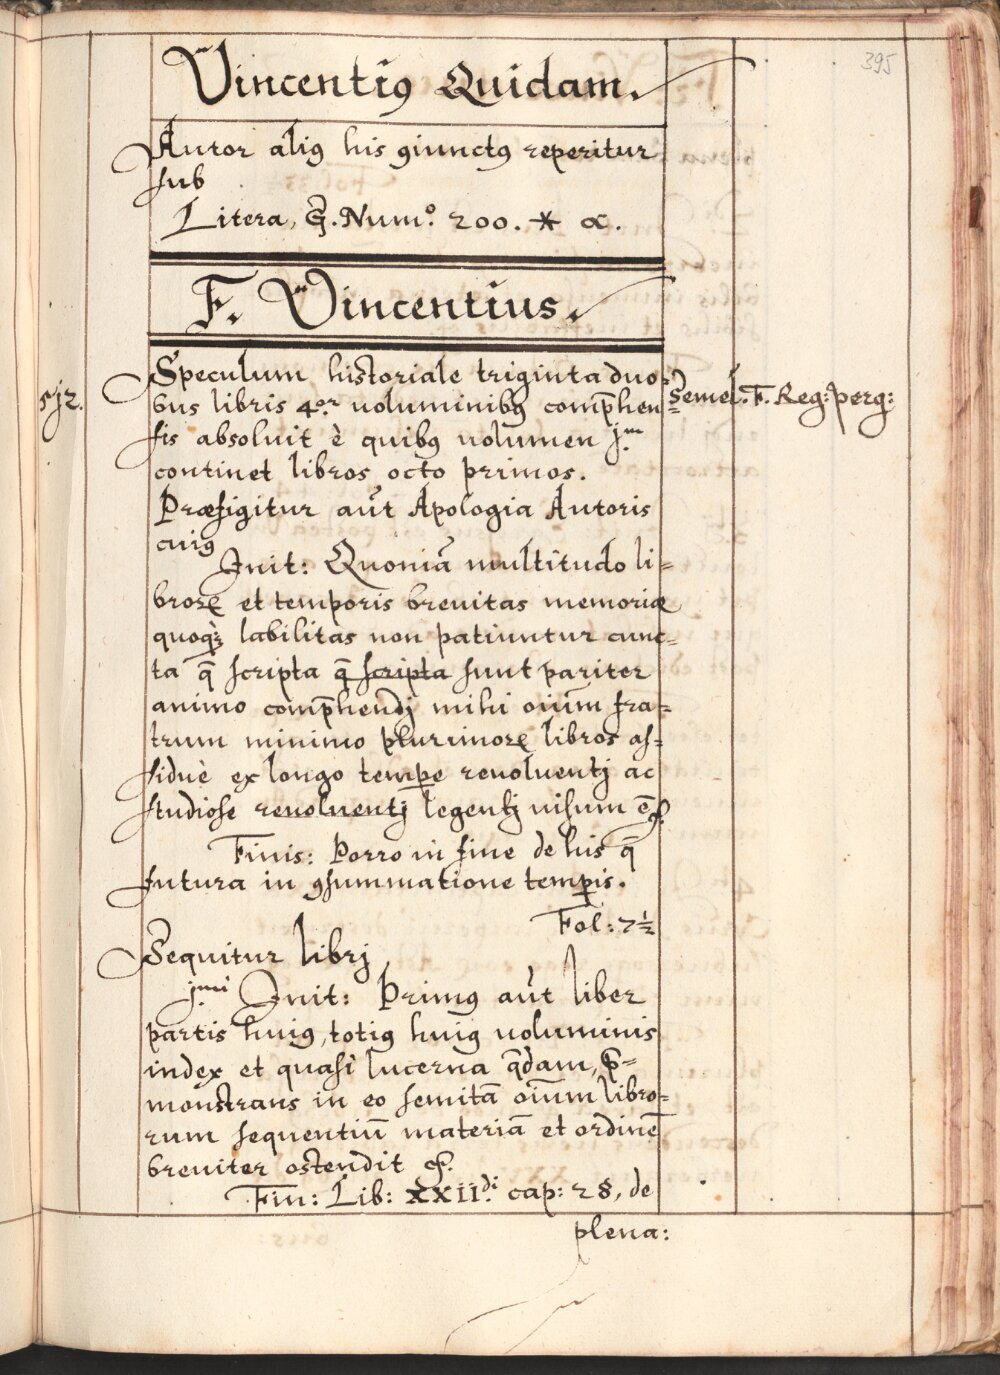 395
Vincentiꝰ Quidam.
Autor aliꝰ his ꝯiunctꝰ reperitur
sub
Litera, G̃. Num.º 200. * α.
F. Vincentius.
512.
Speculum historiale triginta duo=
bus libris 4.or uoluminibꝰ comp̄hen=
sis absoluit è quibꝰ uolumen j.m
continet libros octo primos.
Semel. F. Reg: perg:
Præfigitur aut̃ Apologia Autoris
cuiꝰ
Init: Quoniã multitudo li=
brorꝝ et temporis breuitas memoriæ
quoqꝫ labilitas non patiuntur cunc=
ta q̃ scripta q̃ scripta sunt pariter
animo comp̄hendj mihi oiũm fra=
trum minimo plurimorꝝ libros as=
siduè ex longo tempe reuoluentj ac
studiose reuoluentj legentj uisum ẽ &.
Finis: Porro in fine de his q̃
futura in ꝯsummatione tempis.
Fol: 7½
Sequitur librj
j.mi Init: Primꝰ aut̃ liber
partis huiꝰ, totiꝰ huiꝰ uoluminis
index et quasi lucerna q̃dam, p̄=
monstrans in eo semitã oĩum libro=
rum sequentiũ materiã et ordinẽ
breuiter ostendit &.
Fin: Lib: XXII.di cap: 28, de
plena: